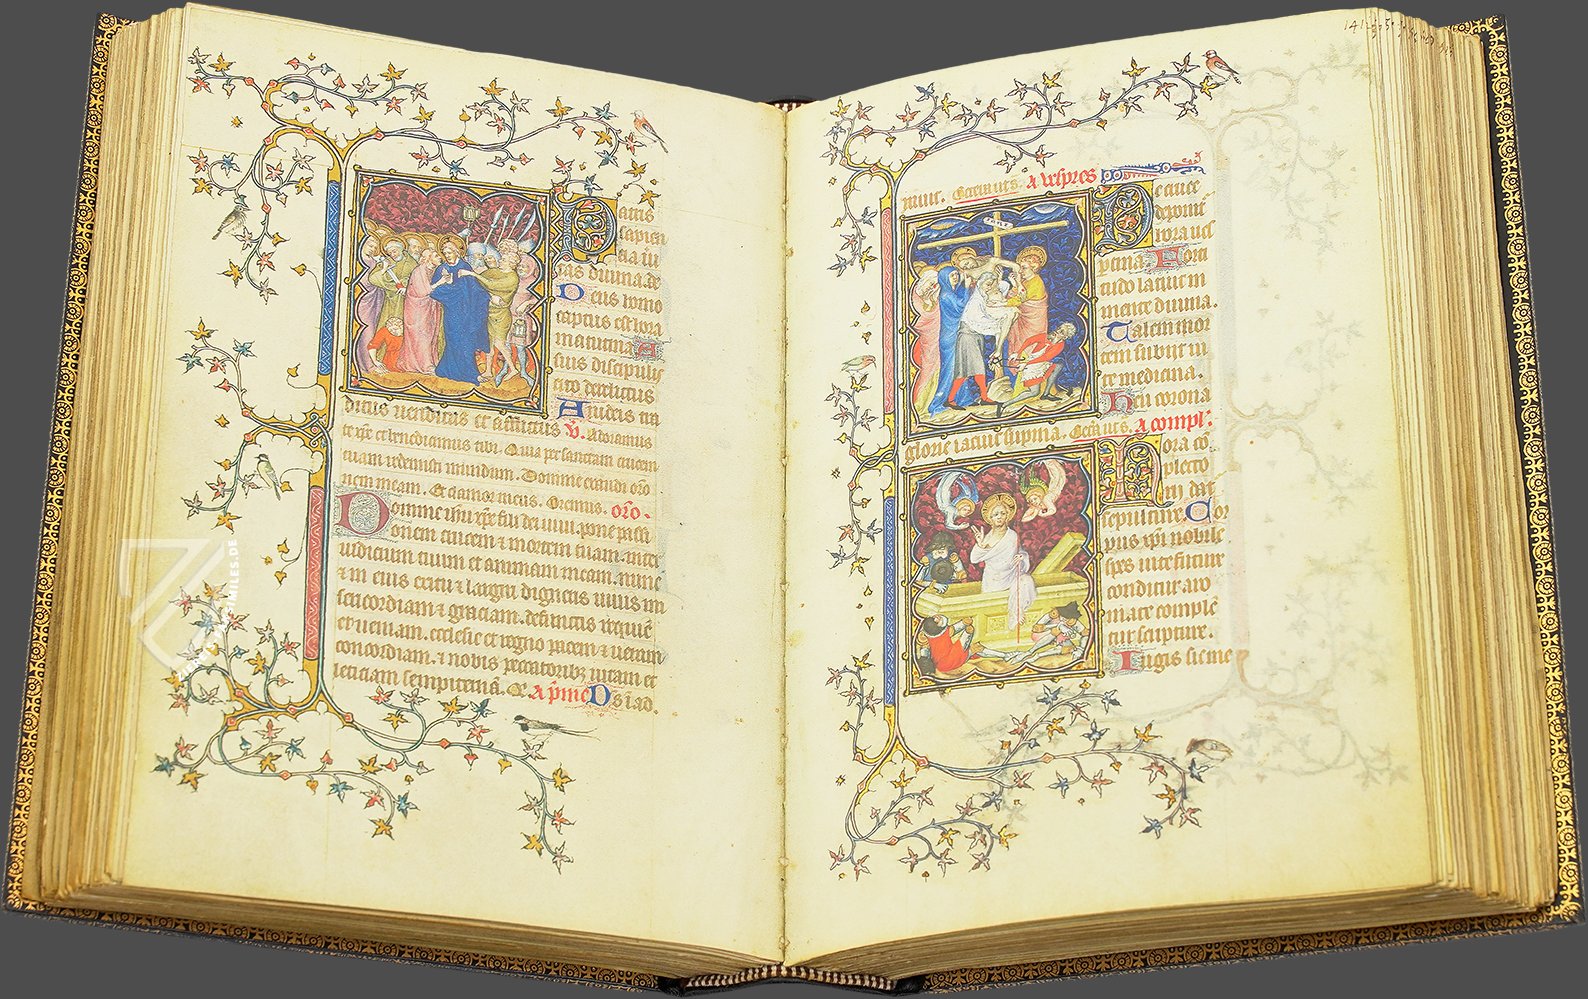 Patris
sapien
tia ve
ritas divina. de
Deus homo
captus est hora
matutina. A
suis discipulis
cito derelictus
A iudeis tra
ditus venditus et afflictus. V. Adoramus
te xpe et benedicimus tibi. Quia per sanctam crucem
tuam redemisti mundum. Domine exaudi oro
nem meam. Et clamor meus. Oremus. oro.
Domine ihu xpe fili dei vivi. pone passi
onem crucem et mortem tuam. inter
iudicium tuum et animam meam. nunc
et in
gratiam. defunctis requiē
ecclesie et regno pacem et veram
concordiam. et nobis peccatoribz vitam et
leticiam sempiternā. A pme Ds i ad.
FACSIMILES.DE
141
Oremus. A vespres
De cruce
deponit
hora ves
ptina. Forti
tudo latuit in
mente divina.
Talem mor
tem subiit vi
te medicina.
Heu corona
glorie iacuit supina. Oremus. A compl.
Hora cō
pleto
rij dat
sepulture. Cor
pus xpi nobile
spes vite future
conditur aro
mate complē
tur scripture.
Iugis sic me